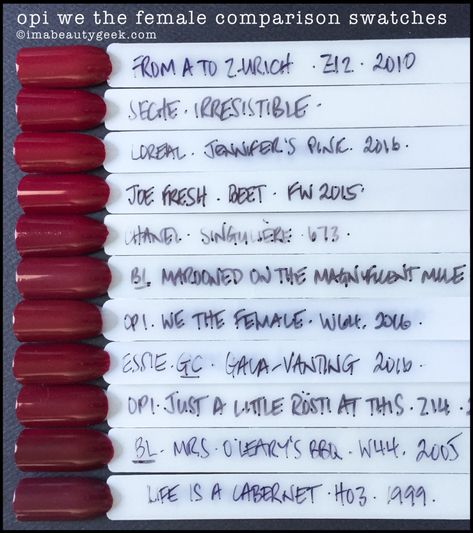 opi we the female comparison swatches
©imabeautygeek.com
FROM A TO Z-URICH · Z12 · 2010
SECHE · IRRESISTIBLE ·
LOREAL · JENNIFER'S PINK · 2016 ·
JOE FRESH · BEET · FW 2015 ·
CHANEL · SINGULIÈRE · 673 ·
BL MAROONED ON THE MAGNIFICENT MILE
OPI · WE THE FEMALE · W64 · 2016 ·
ESSIE · GC · GALA-VANTING 2016
OPI · JUST A LITTLE RÖSTI AT THIS · Z14 ·
BL · MRS · O'LEARY'S BBQ · W44 · 2005
LIFE IS A CABERNET · H03 · 1999 ·